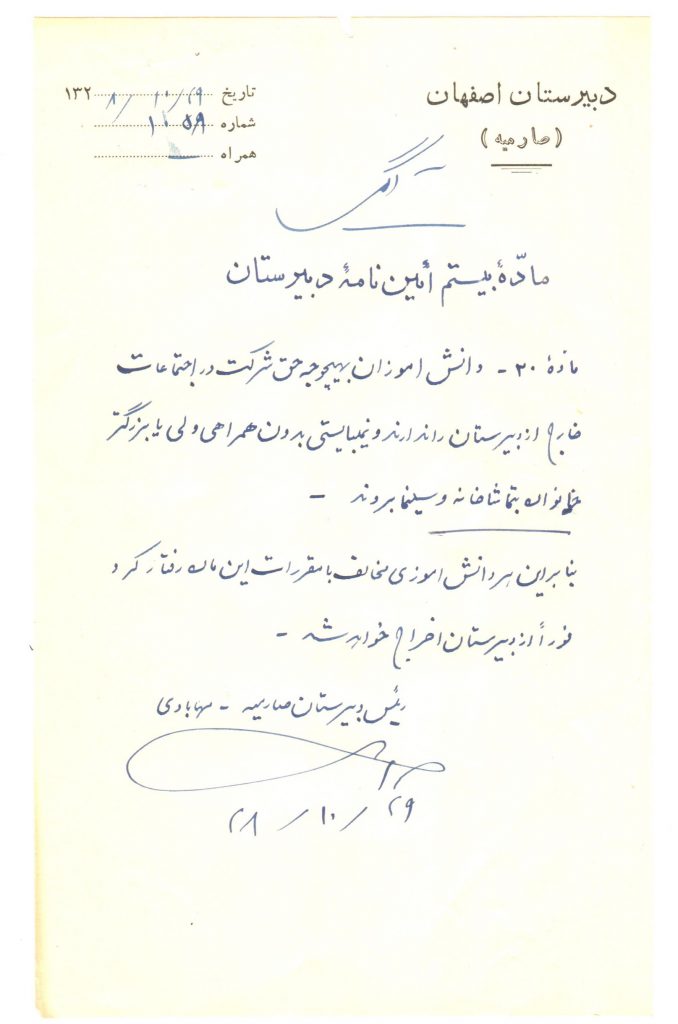 دبیرستان اصفهان
(صارمیه)
تاریخ ۲۹/۱۰/۱۳۲۸
شماره ۱۰۵۹
همراه —
آگهی
مادّهٔ بیستم آئین نامهٔ دبیرستان
مادهٔ ۲۰ - دانش اموزان بهیچوجه حق شرکت در اجتماعات
خارج از دبیرستان را ندارند و نمیبایستی بدون همراهی ولی یا بزرگتر
خانواده بتماشاخانه و سینما بروند -
بنابراین هر دانش اموزی مخالف با مقررات این ماده رفتار کرد
فوراً از دبیرستان اخراج خواهد شد -
رئیس دبیرستان صارمیه - مهابادی
۲۸/۱۰/۲۹